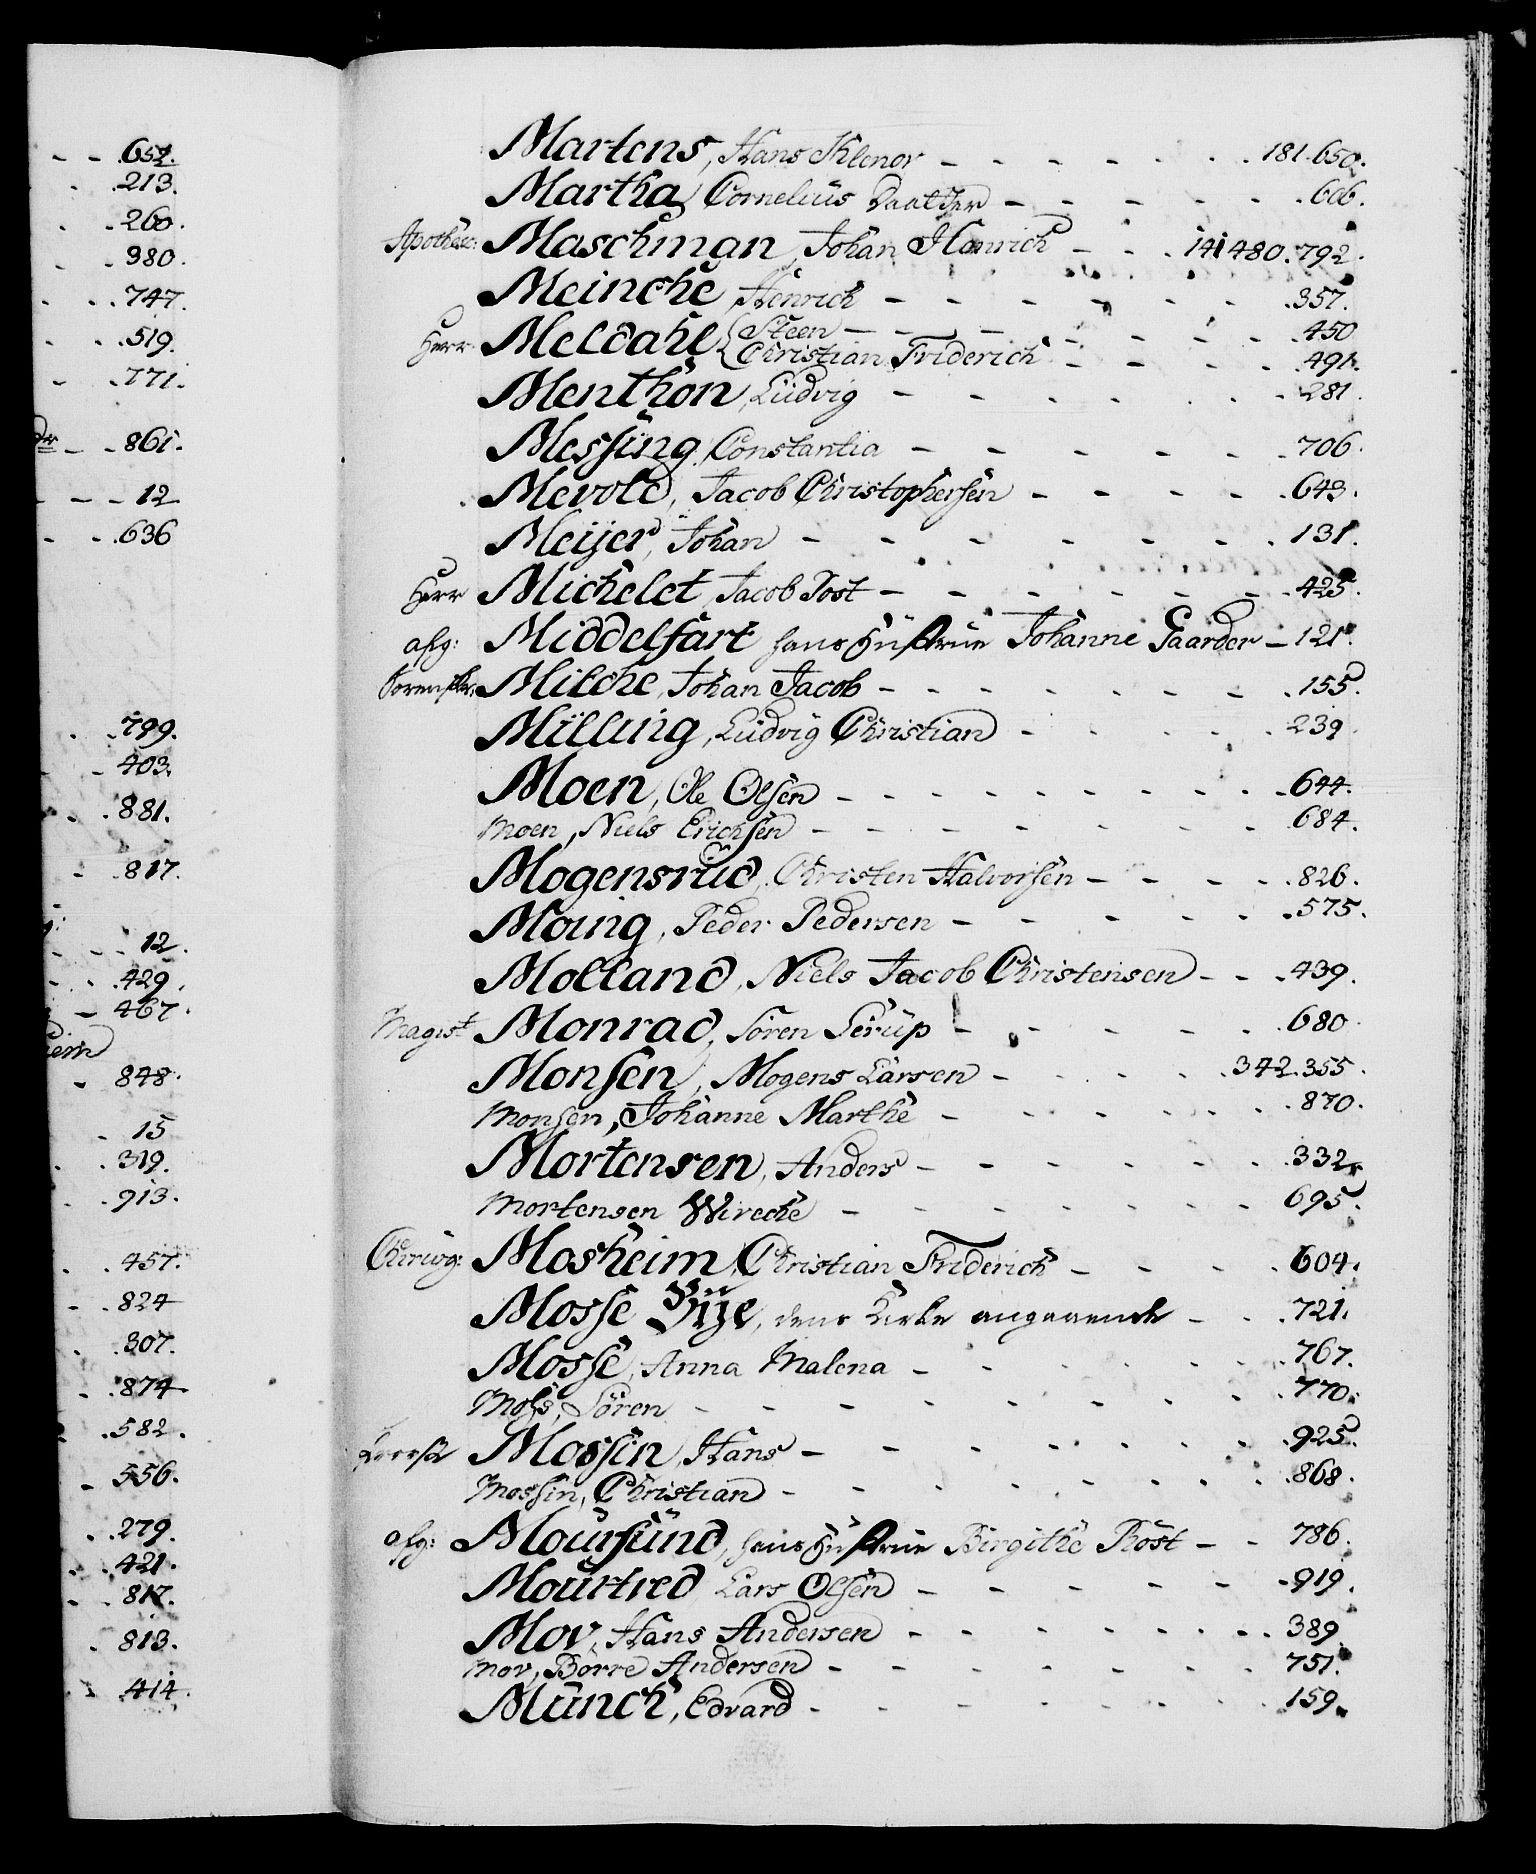 652.
213.
260.
980.
747.
519.
771.
861.
12
636
799.
403.
881.
817.
12.
429.
467.
848.
15
319.
913.
457.
824
307.
874.
582.
556.
279.
421.
817.
813.
414.
Martens, Hans Klenov - - - - - - - 181.650.
Martha Cornelius Daatter - - - - - - 606.
Apothec: Maschman Johan Henrich - - - 141 480.792.
Meinche Henrich - - - - - - - 357.
Herr Meldahl { Steen - - - - - - - 450
Christian Friderich - - - - 491.
Menthon, Ludvig - - - - - - - 281.
Messing, Constantia - - - - - - 706.
Mevold, Jacob Christophersen - - - - - 643.
Meÿer, Johan - - - - - - - 131.
Herr Michelet, Jacob Post - - - - - - - 425.
afg: Middelfart hans Hustrue Johanne Gaarder - 121.
Milche, Johan Jacob - - - - - - - - 155.
Milling, Ludvig Christian - - - - - 239
Moen, Ole Olsen - - - - - - - - - 644.
Moen, Niels Erichsen - - - - - - - 684.
Mogensrud, Christen Halvorsen - - - - 826.
Moing, Peder Pedersen - - - - - - 575.
Molland, Niels Jacob Christensen - - - 439.
Magist Monrad, Sören Serup - - - - - - 680.
Monsen, Mogens Larsen - - - - - 342.355.
Monsen, Johanne Marthe - - - - - - - 870.
Mortensen, Anders - - - - - - - 332.
Mortensen Wirche - - - - - - - 695.
Chirurg: Mosheim, Christian Friderich - - - - 604.
Mosse Bÿe, dens Kirke angaaende - - 721.
Mosse, Anna Malena - - - - - - 767.
Moss, Sören - - - - - - - - 770.
Mossin, Hans - - - - - - - - 925.
Mossin, Christian - - - - - - - - 868.
afg: Moursund, hans Hustrue Birgithe Röst - - 786.
Mourtred Lars Olsen - - - - - - 919.
Mov, Hans Andersen - - - - - - - 389
Mov, Börre Andersen - - - - - - - 751.
Münch, Edvard - - - - - - - 159.